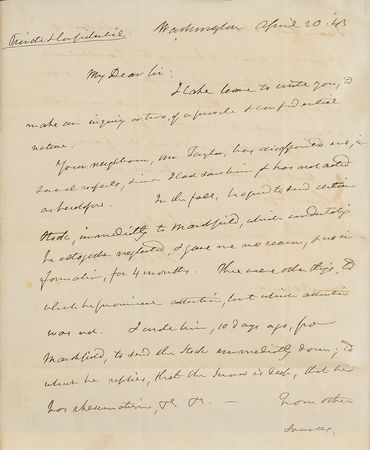 Private & Confidential
Washington April 20. '43
My Dear Sir;
I take leave to write you, to
make an inquiry or two, of a private & confidential
nature.
Your neighbour, Mr Taylor, has disappointed me, in
several respects, since I last saw him, & has not acted
as heretofore. In the fall, he agreed to send certain
Stock, immediately to Marshfield, which undertaking
he altogether neglected, & gave me no reason, & no in
formation, for 4 months. There were other things, to
which he promised attention, but which attention
was not. I wrote him, 10 days ago, from
Marshfield, to send the Stock immediately down; to
which he replies, that the Snow is deep, that he
has rheumatism, &c &c. — From other
sources,